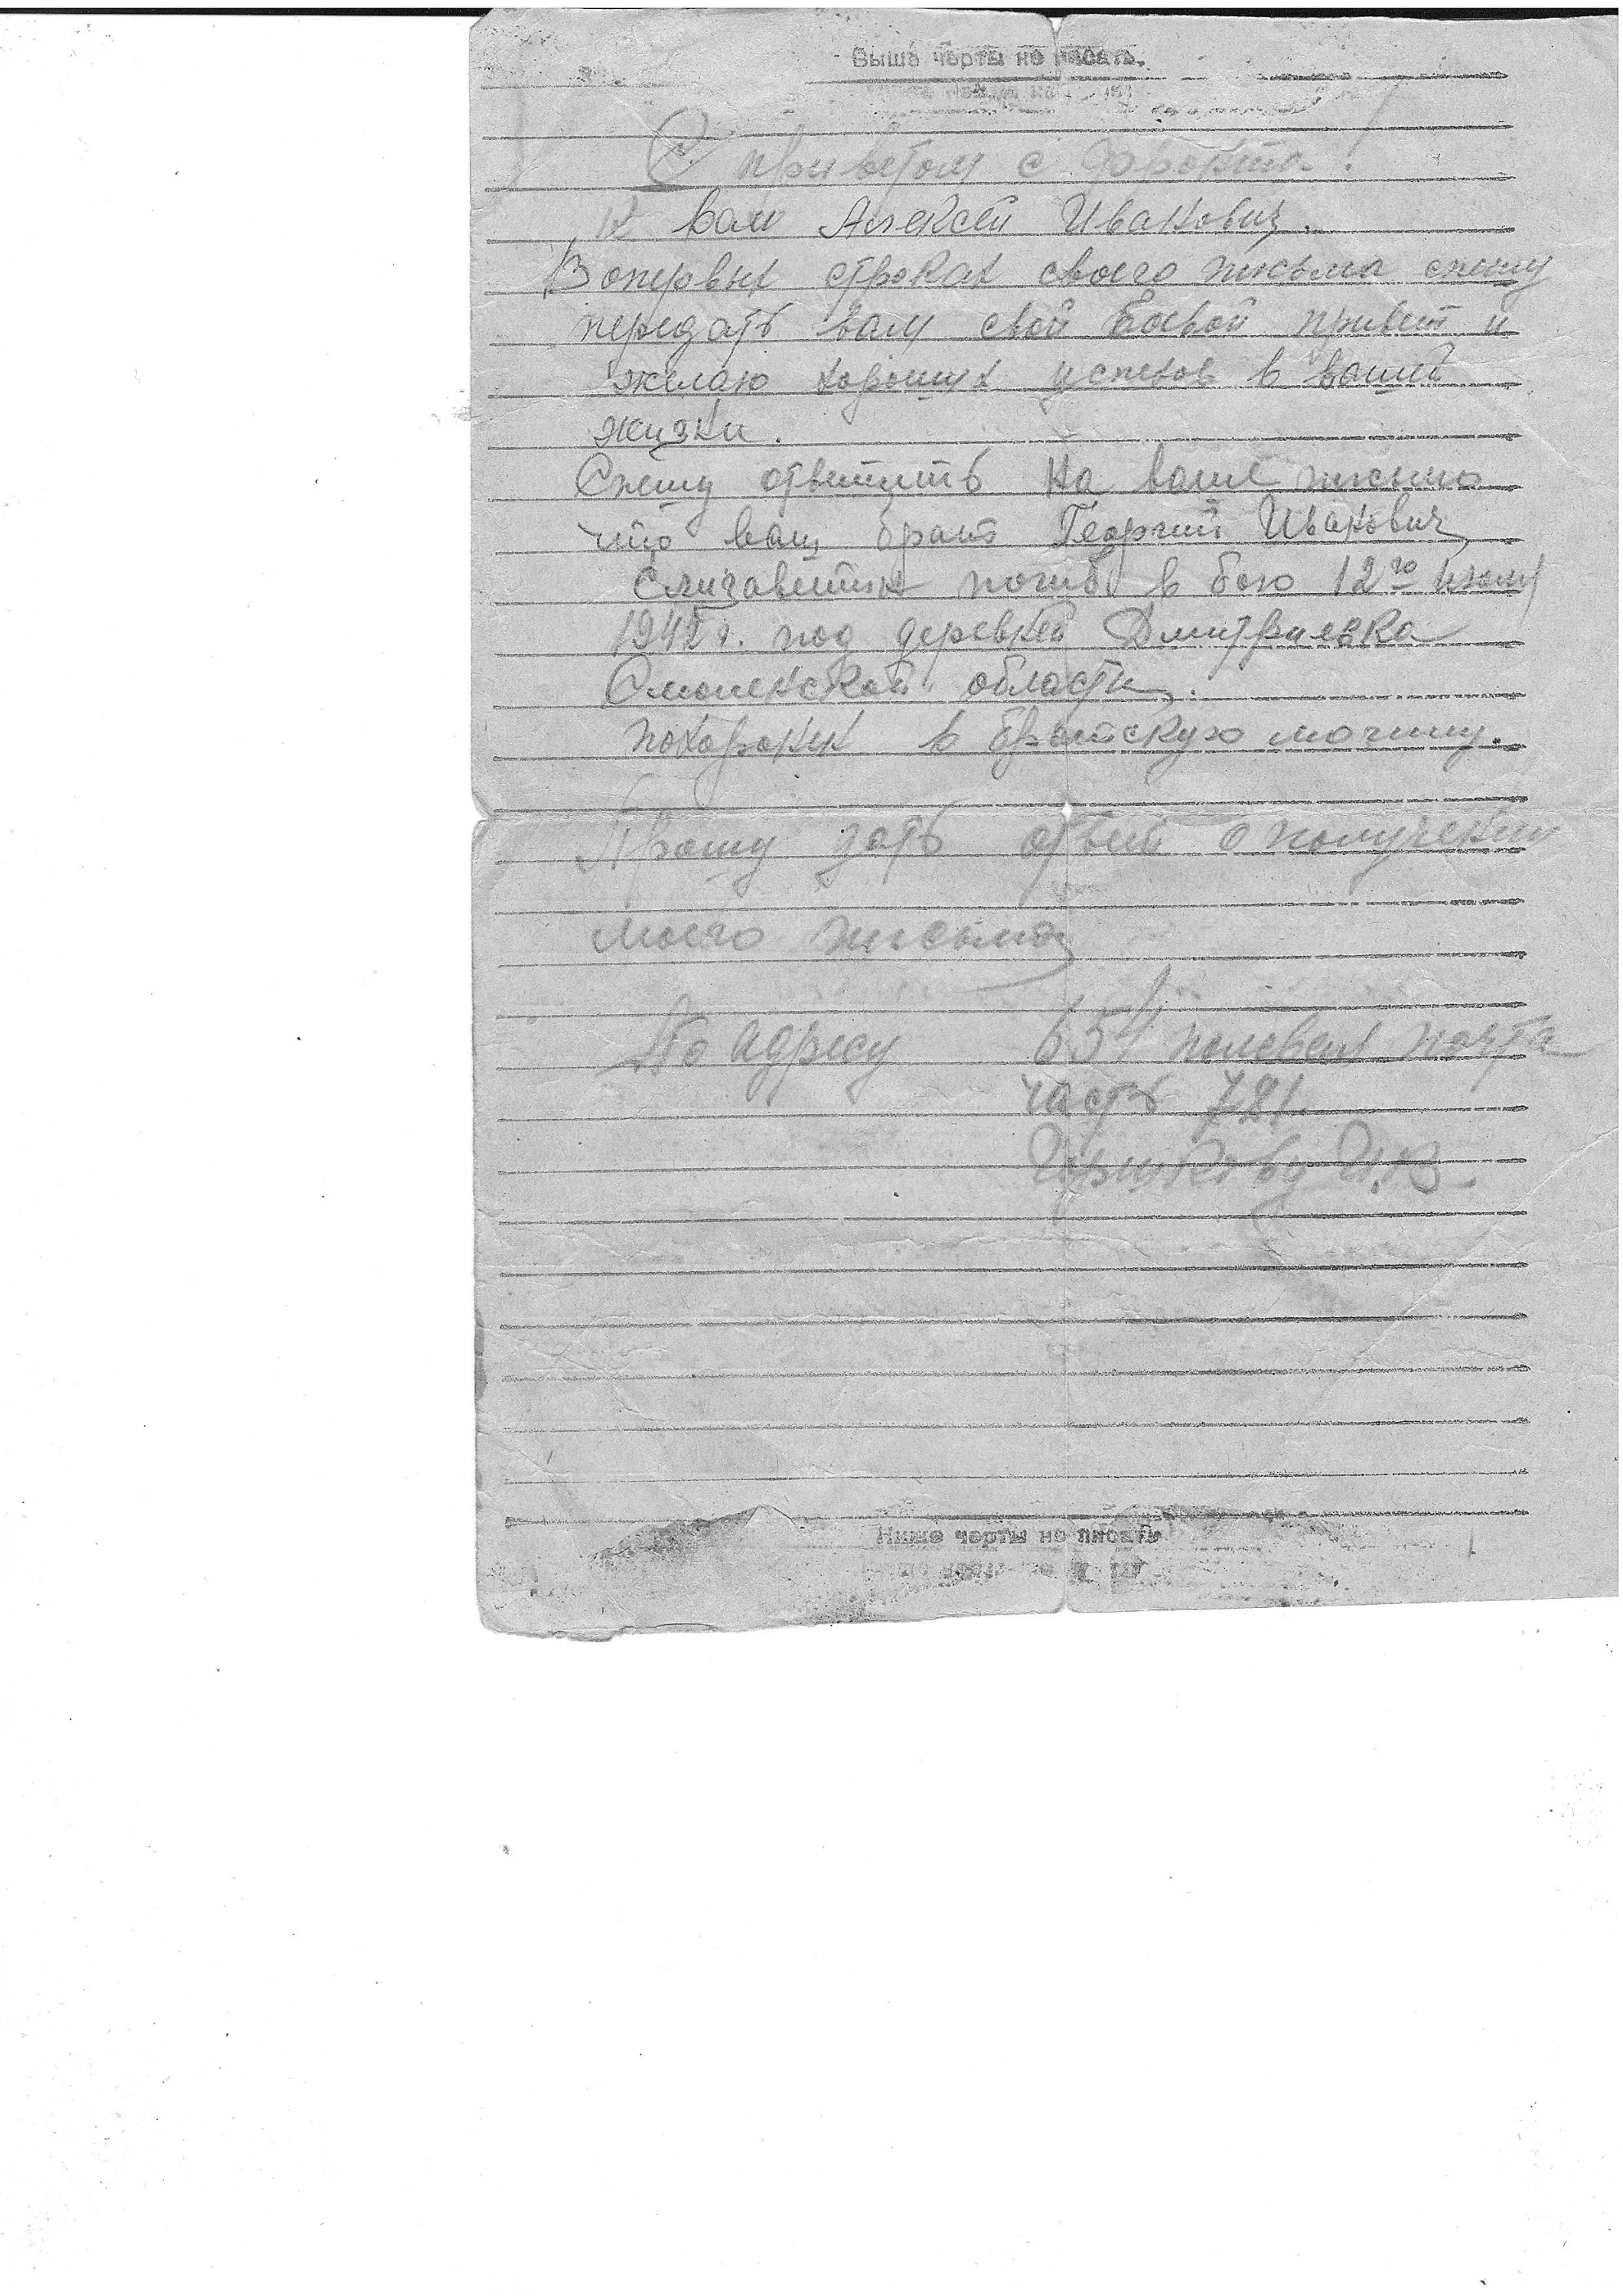 Выше черты не писать.
С приветом с фронта!
к вам Алексей Иванович.
Вопервых строках своего письма спешу
передать вам свой боевой привет и
желаю хороших успехов в вашей
жизни.
Спешу ответить на ваше письмо
что ваш брат Георгий Иванович
Елизаветин погиб в бою 12го
1942 г. под деревней Дмитриевка
Смоленской области.
похоронен в братскую могилу.
Прошу дать ответ о получении
моего письма
По адресу 654 полевая почта
часть 781.
И.В.
Ниже черты не писать